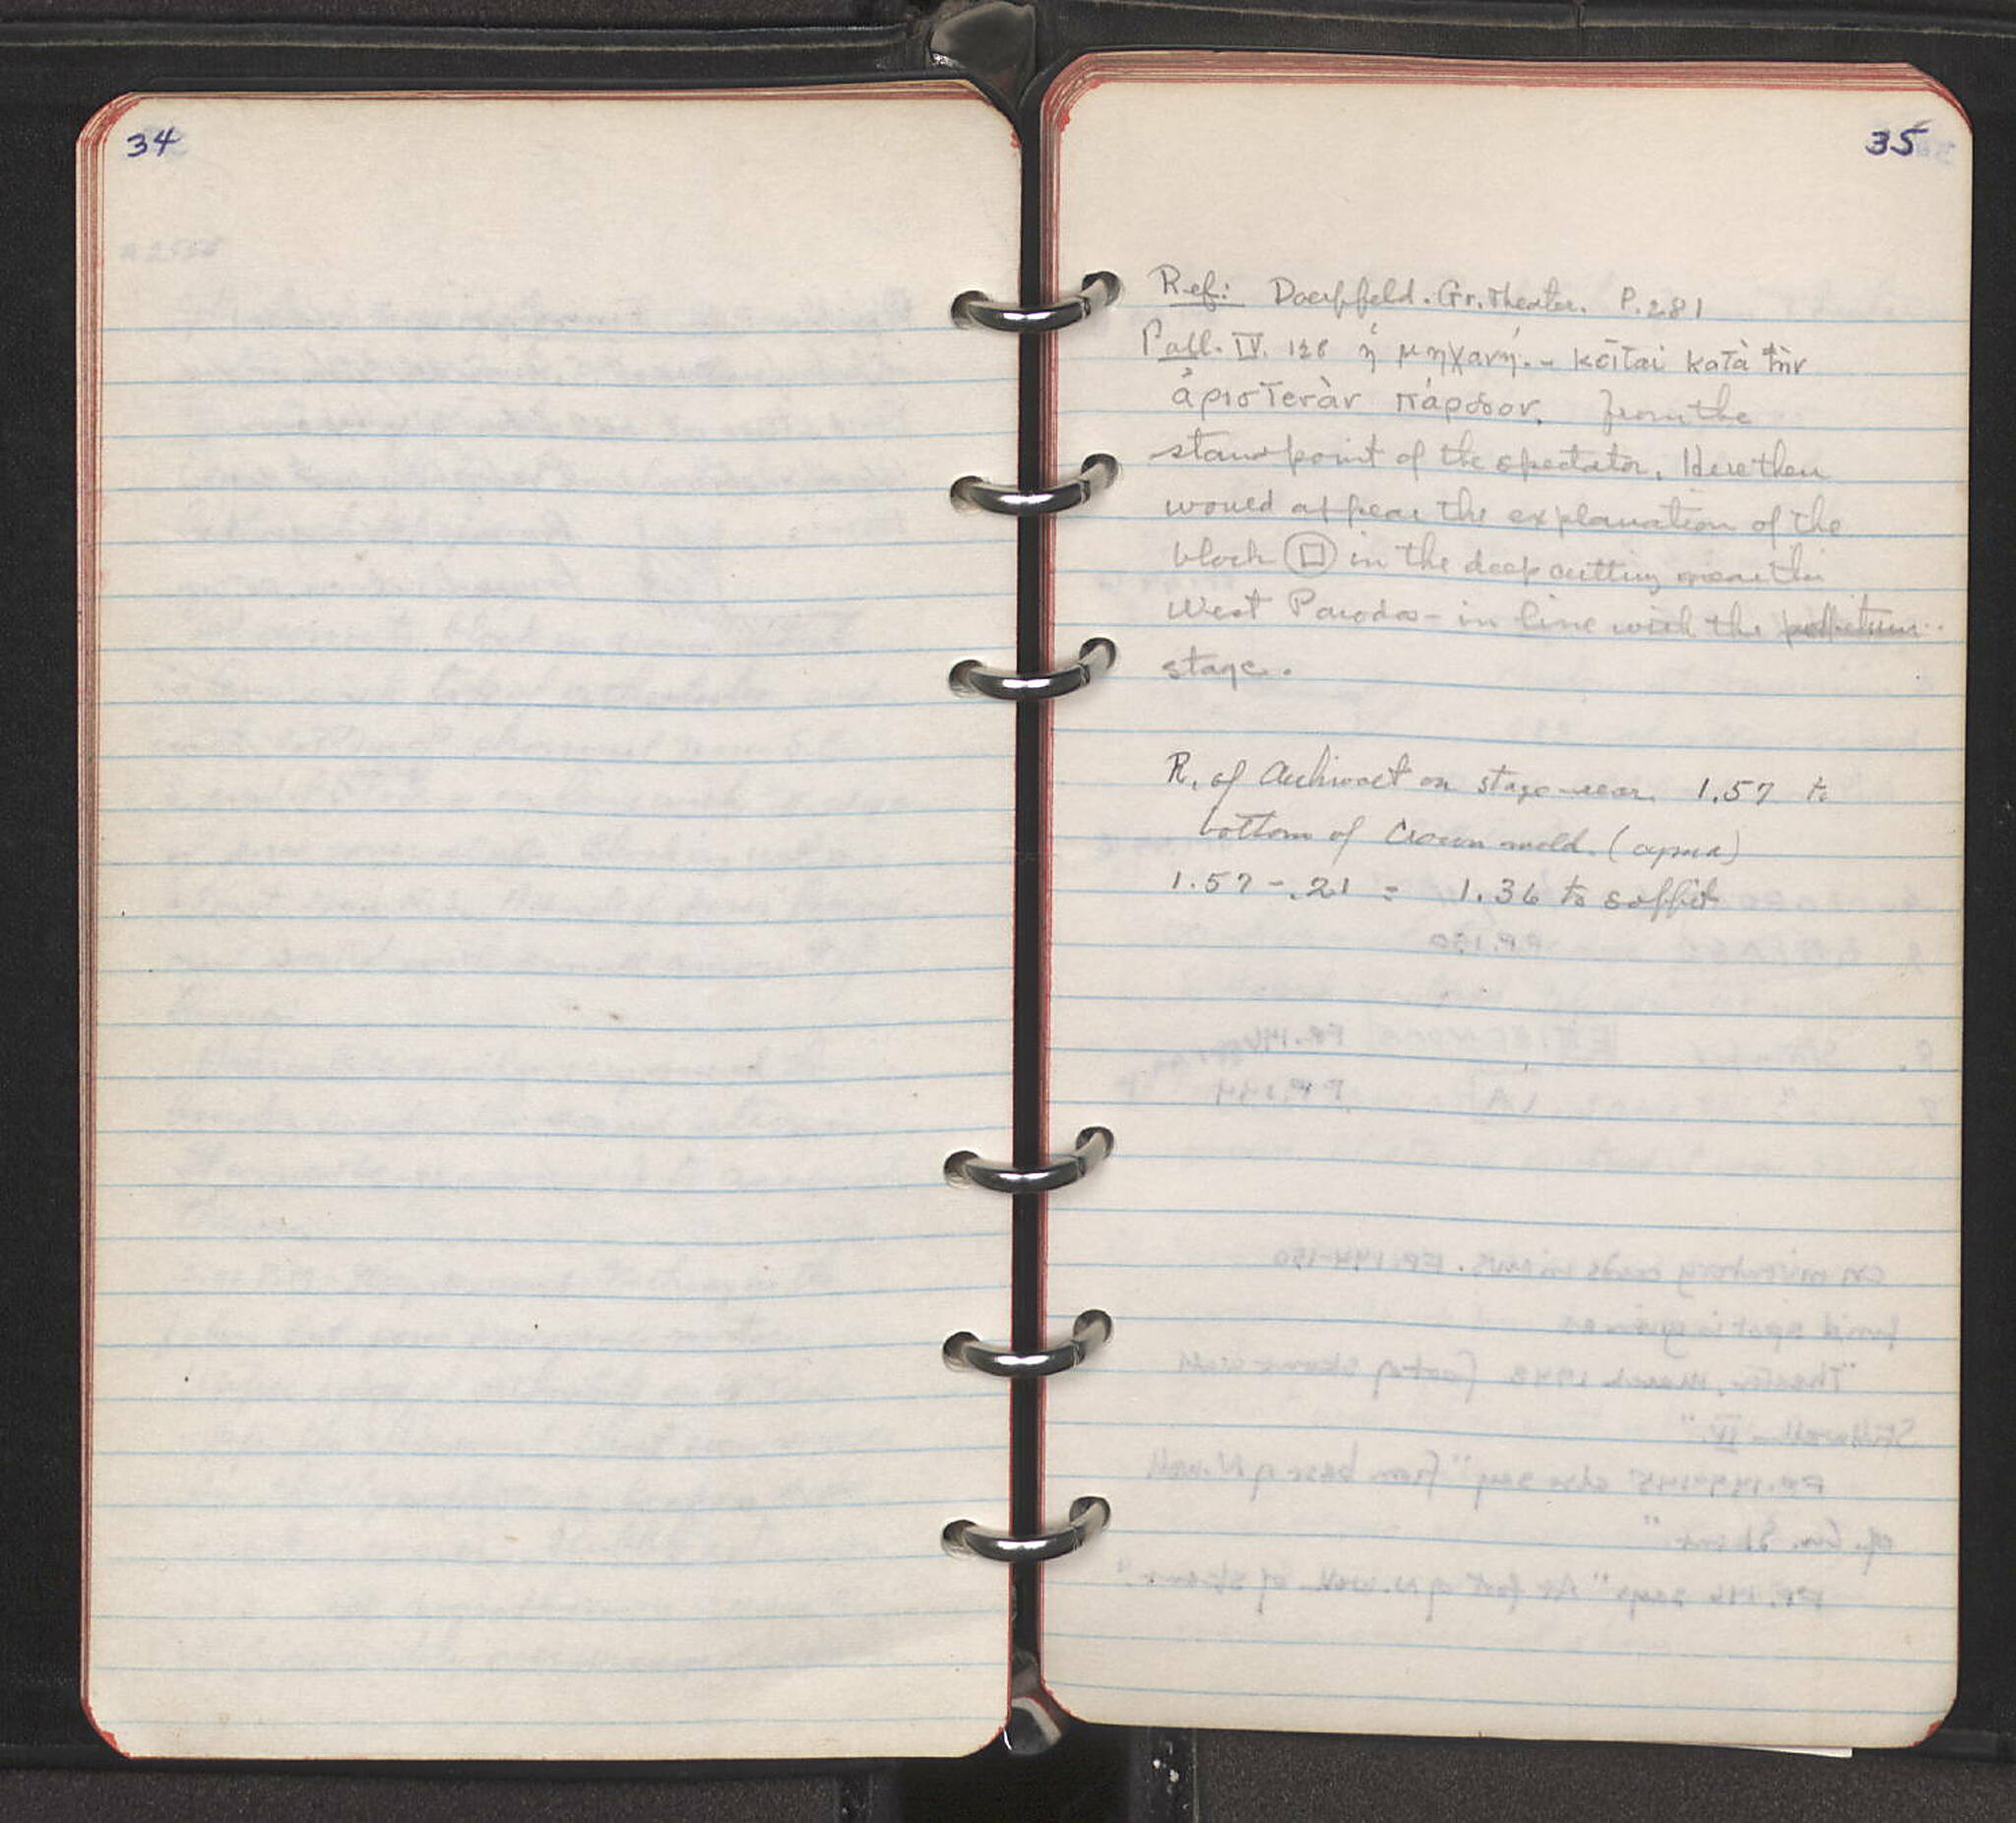 34
35
Ref: Doerpfeld. Gr. Theater. P. 281
Poll. IV. 128 ἡ μηχανή. - κεῖται κατὰ τὴν
ἀριστερὰν πάροδον. from the
standpoint of the spectator. Here then
would appear the explanation of the
block □ in the deep cutting near the
West Parodos - in line with the
stage.
R. of Archivolt on stage-rear. 1.57 to
bottom of Crown mold. (cyma)
1.57 - .21 = 1.36 to soffit